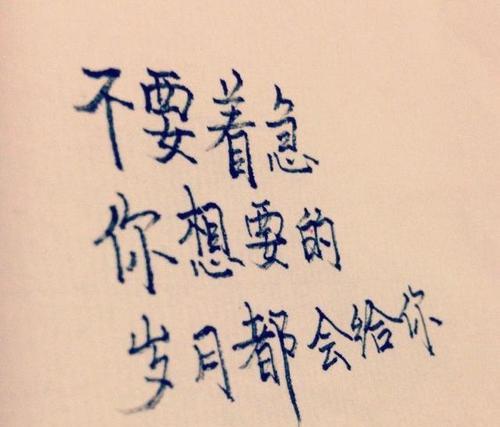 不要着急
你想要的
岁月都会给你